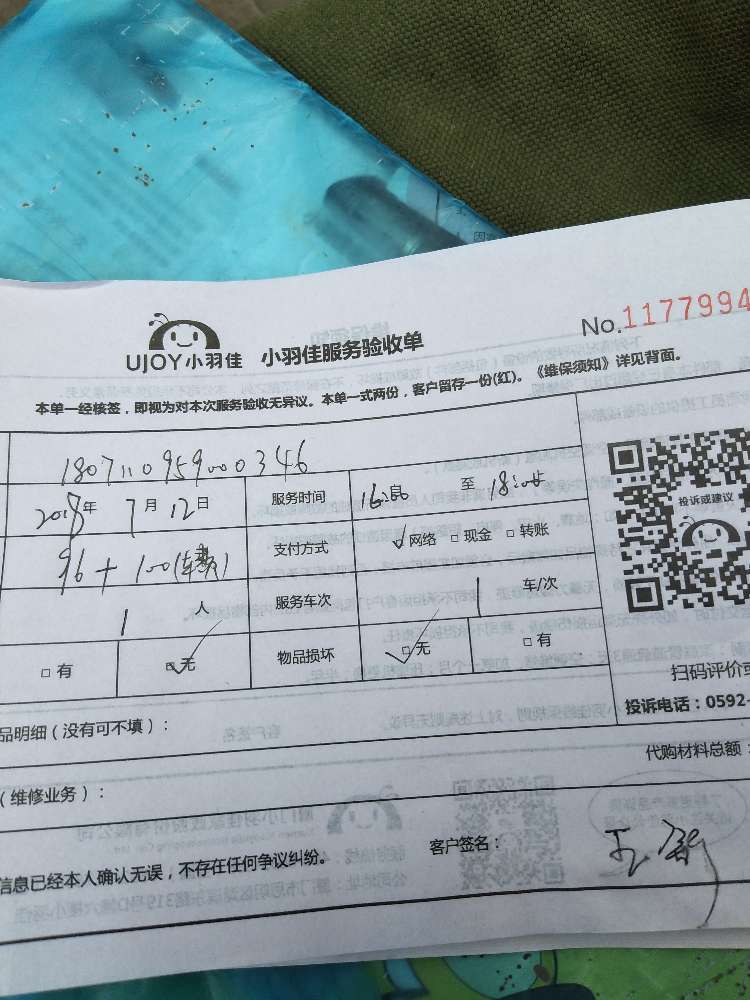 No.1177994
UJOY小羽佳 小羽佳服务验收单
本单一经核签，即视为对本次服务验收无异议。本单一式两份，客户留存一份(红)。《维保须知》详见背面。
1807110959000346
2018年 7月 12日 服务时间 16:00 至 18:00
96+100(车费) 支付方式 网络 现金 转账
1 人 服务车次 1 车/次
有 无 物品损坏 无 有
投诉或建议
扫码评价或
投诉电话：0592-
品明细（没有可不填）：
代购材料总额：
（维修业务）：
信息已经本人确认无误，不存在任何争议纠纷。
客户签名：